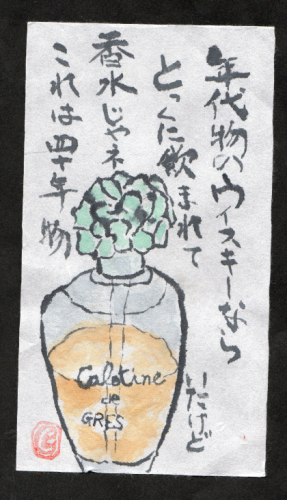 年代物のウィスキーなら
とっくに飲まれて
いたけど
香水じゃネ
これは四十年物
Calotine
de
GRES